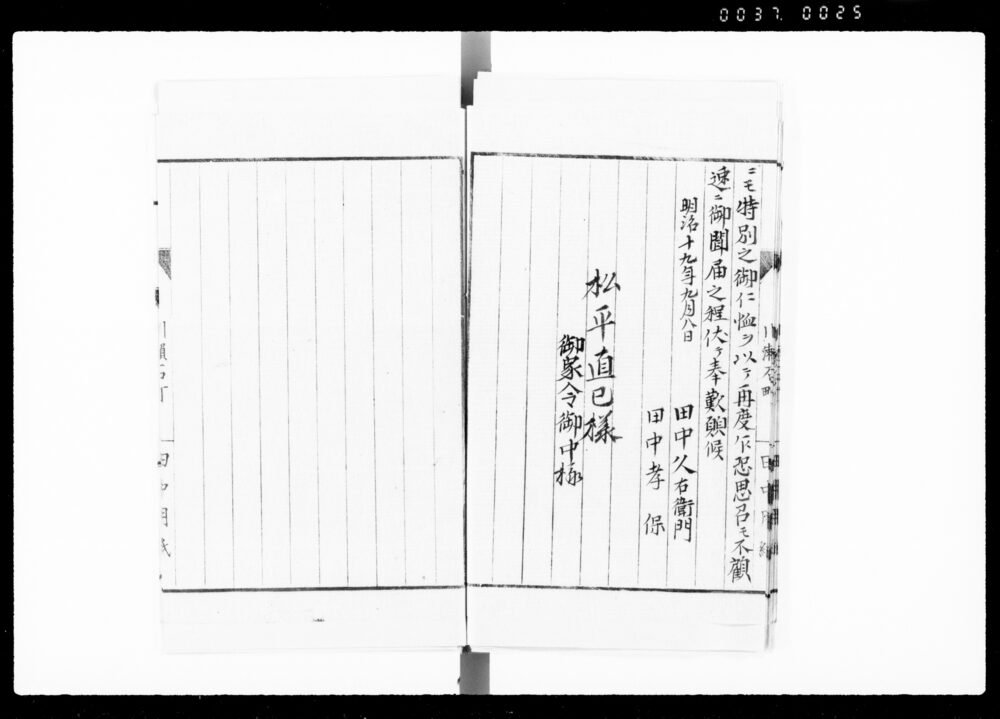 0037. 0025
ニモ特別之御仁恤ヲ以テ再度乍恐思召モ不顧
速ニ御聞届之程伏テ奉歎願候
明治十九年九月八日
田中久右衛門
田中孝保
松平直巳様
御家令御中様
田中用紙